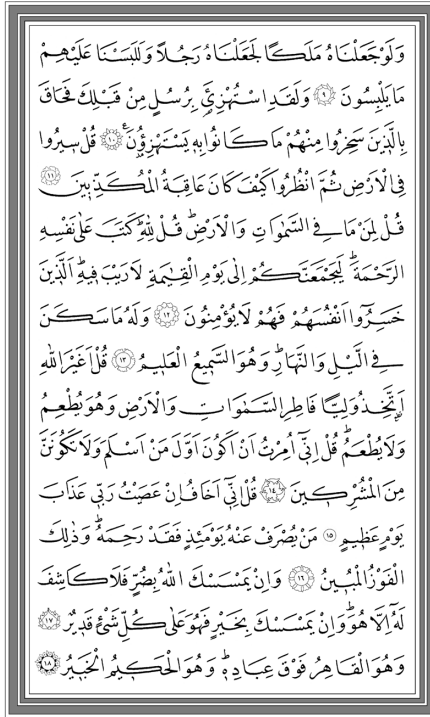 وَلَوْ جَعَلْنَاهُ مَلَكًا لَجَعَلْنَاهُ رَجُلًا وَلَلَبَسْنَا عَلَيْهِمْ
مَا يَلْبِسُونَ ﴿٩﴾ وَلَقَدِ اسْتُهْزِئَ بِرُسُلٍ مِنْ قَبْلِكَ فَحَاقَ
بِالَّذِينَ سَخِرُوا مِنْهُمْ مَا كَانُوا بِهِ يَسْتَهْزِؤُنَ ﴿١٠﴾ قُلْ سِيرُوا
فِى الْاَرْضِ ثُمَّ انْظُرُوا كَيْفَ كَانَ عَاقِبَةُ الْمُكَذِّبِينَ ﴿١١﴾
قُلْ لِمَنْ مَا فِى السَّمٰوَاتِ وَالْاَرْضِ قُلْ لِلّٰهِ كَتَبَ عَلٰى نَفْسِهِ
الرَّحْمَةَ لَيَجْمَعَنَّكُمْ اِلٰى يَوْمِ الْقِيٰمَةِ لَارَيْبَ فِيهِ اَلَّذِينَ
خَسِرُٓوا اَنْفُسَهُمْ فَهُمْ لَا يُؤْمِنُونَ ﴿١٢﴾ وَلَهُ مَا سَكَنَ
فِى الَّيْلِ وَالنَّهَارِ وَهُوَ السَّمِيعُ الْعَلِيمُ ﴿١٣﴾ قُلْ اَغَيْرَ اللّٰهِ
اَتَّخِذُ وَلِيًّا فَاطِرِ السَّمٰوَاتِ وَالْاَرْضِ وَهُوَ يُطْعِمُ
وَلَا يُطْعَمُ قُلْ اِنِّٓى اُمِرْتُ اَنْ اَكُونَ اَوَّلَ مَنْ اَسْلَمَ وَلَا تَكُونَنَّ
مِنَ الْمُشْرِكِينَ ﴿١٤﴾ قُلْ اِنِّٓى اَخَافُ اِنْ عَصَيْتُ رَبِّى عَذَابَ
يَوْمٍ عَظِيمٍ ﴿١٥﴾ مَنْ يُصْرَفْ عَنْهُ يَوْمَئِذٍ فَقَدْ رَحِمَهُ وَذٰلِكَ
الْفَوْزُ الْمُبِينُ ﴿١٦﴾ وَاِنْ يَمْسَسْكَ اللّٰهُ بِضُرٍّ فَلَا كَاشِفَ
لَهُٓ اِلَّا هُوَ وَاِنْ يَمْسَسْكَ بِخَيْرٍ فَهُوَ عَلٰى كُلِّ شَىْءٍ قَدِيرٌ ﴿١٧﴾
وَهُوَ الْقَاهِرُ فَوْقَ عِبَادِهِ وَهُوَ الْحَكِيمُ الْخَبِيرُ ﴿١٨﴾